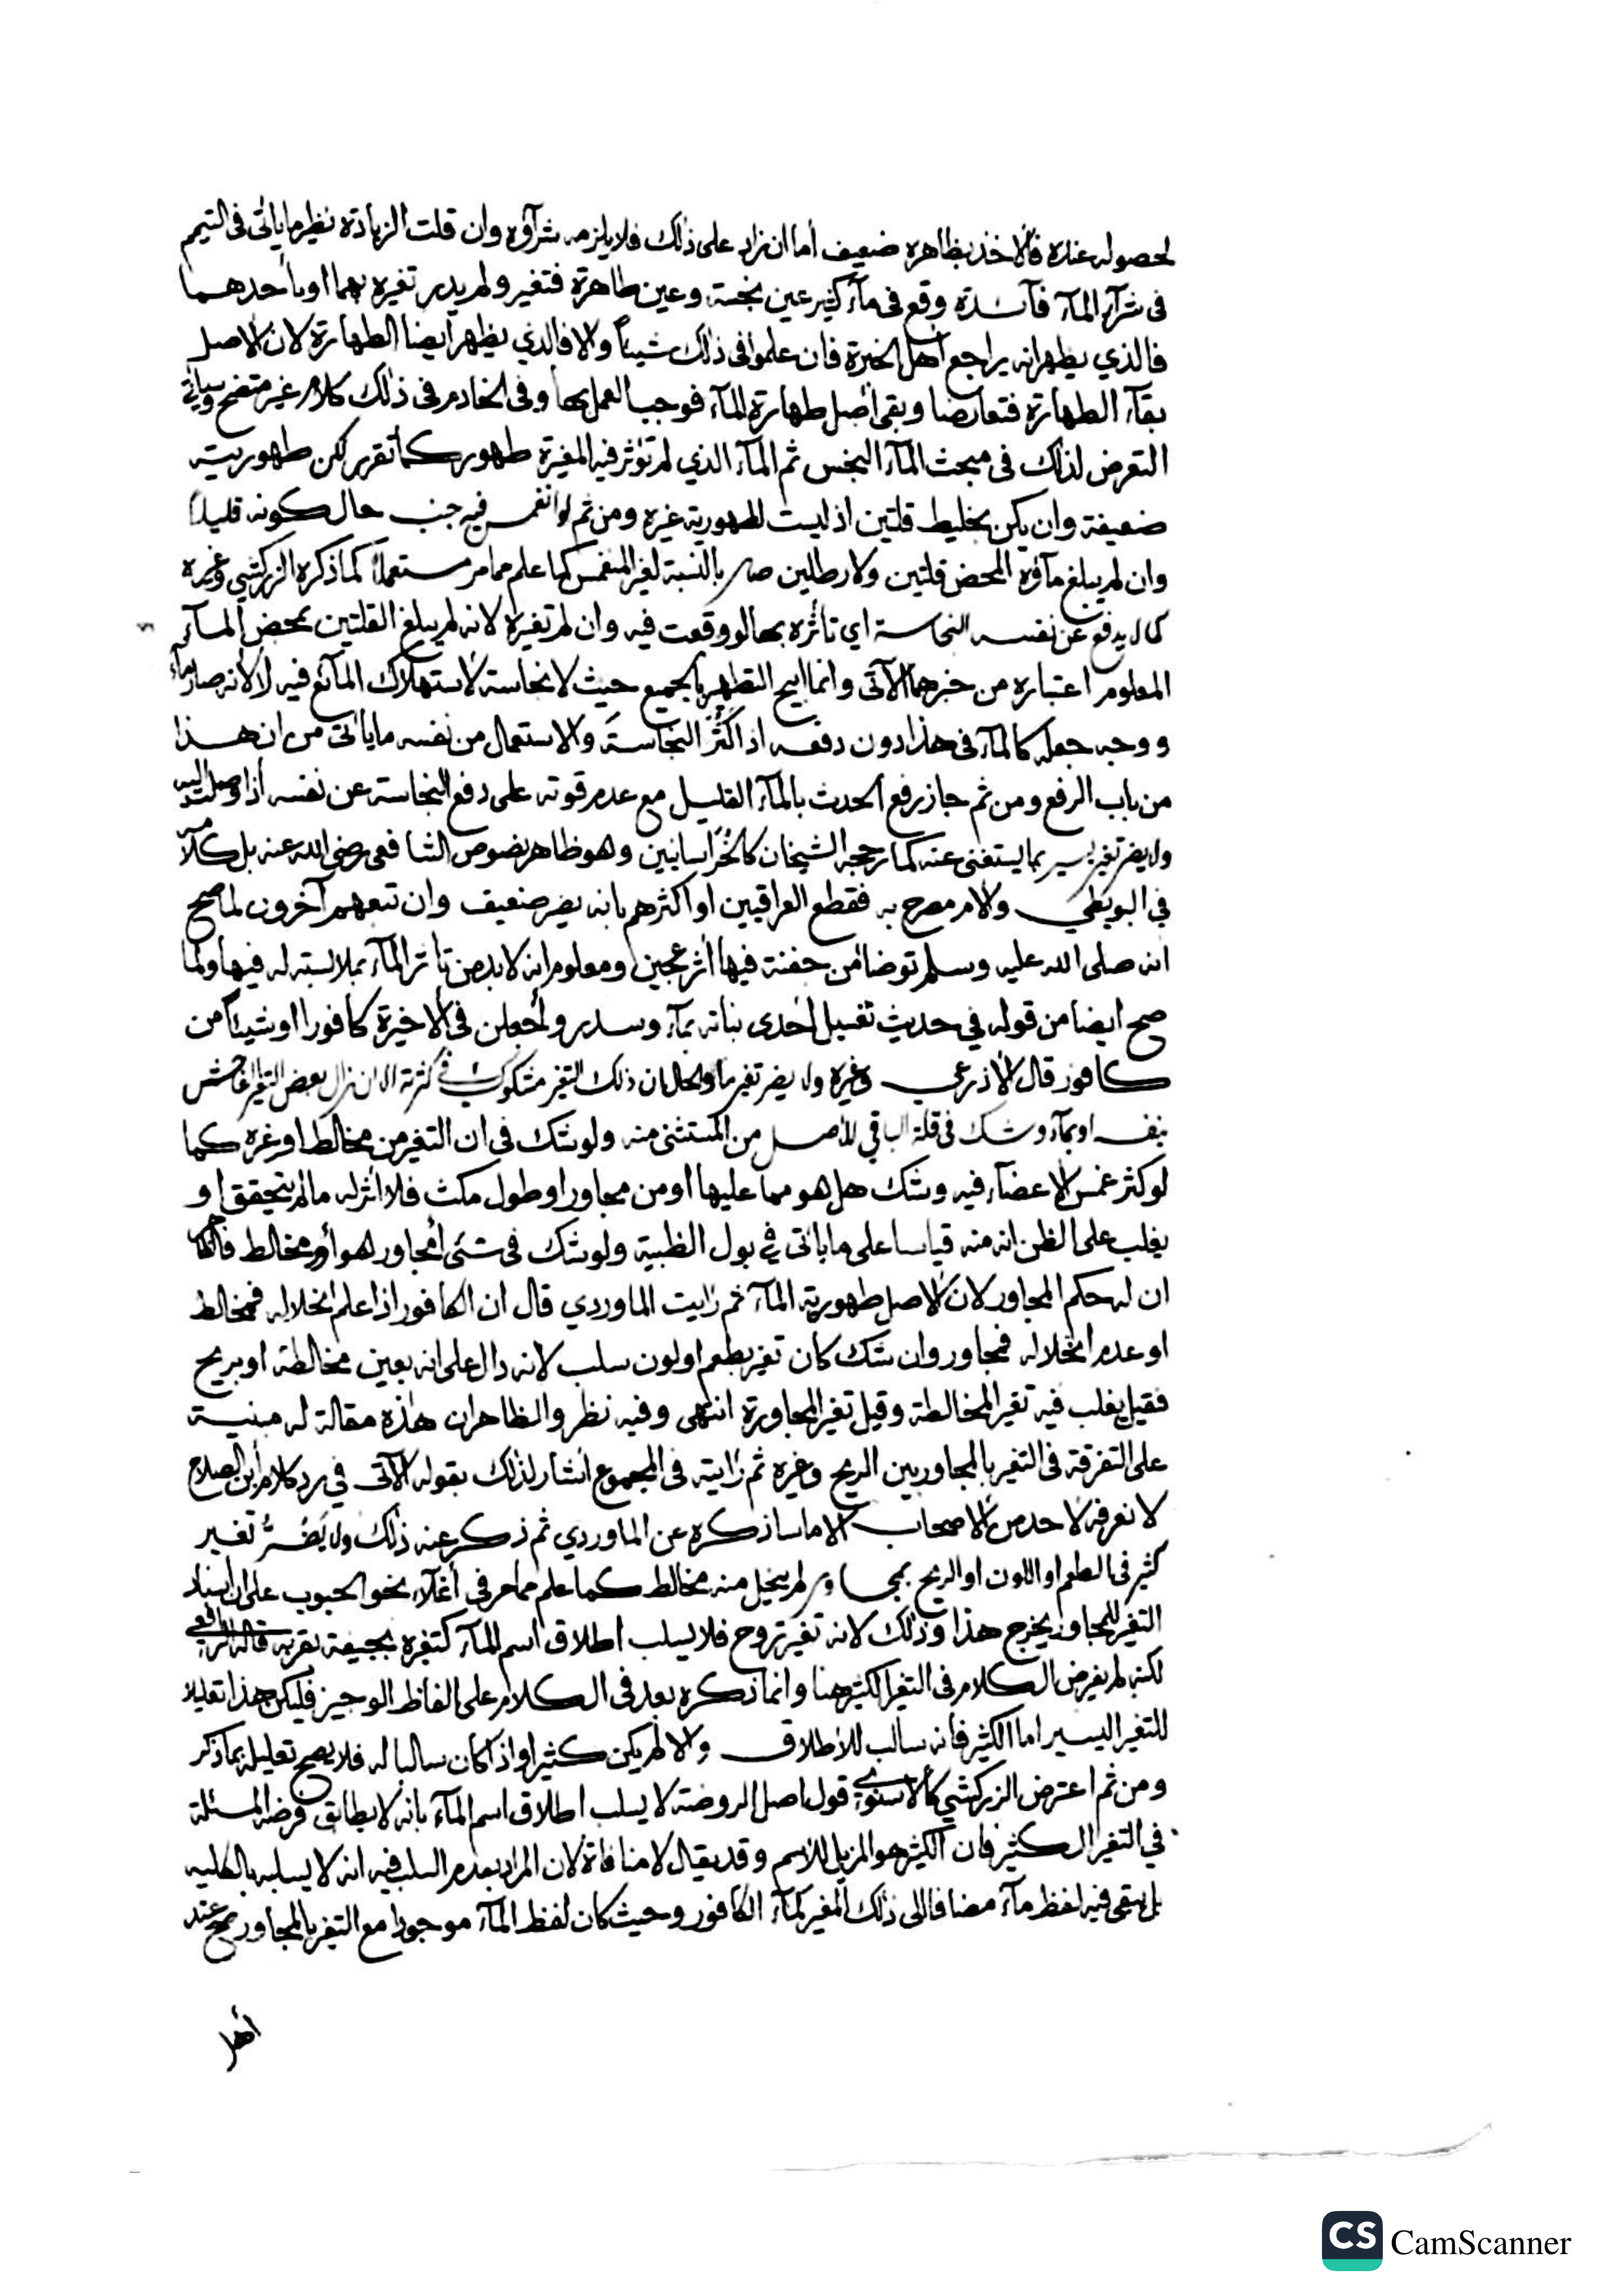 لحصوله عنده فالاخذ بظاهره ضعيف أما ان زاد على ذلك فلا يلزمه شرآؤه وان قلت الزيادة نظير ما يأتى فى التيمم
فى شرآء المآء فآئدة وقع فى مآء كثير عين نجسة وعين طاهرة فتغير ولم يدر تغيره بهما او باحدهما
فالذي يظهر انه يراجع أهل الخبرة فان علموا فى ذلك شيئاً والا فالذي يظهر أيضا الطهارة لان الاصل
بقآء الطهارة فتعارضا وبقى أصل طهارة المآء فوجب العمل بها وفى الخادم فى ذلك كلام غير متضح وسيأتي
التعرض لذلك فى مبحث المآء النجس ثم المآء الذي لم تؤثر فيه المغيرة طهور كما تقرر لكن طهوريته
ضعيفة وان يكن بخليط قلتين اذ ليست لطهورية غيره ومن ثم لو انغمس فيه جنب حال كونه قليلاً
وان لم يبلغ مآؤه المحض قلتين ولا رطلين صار بالنسبة لغير المنغمس كما علم مما مر مستعملاً كما ذكره الزركشي وغيره
كما لم يدفع عن نفسه النجاسة اي تأثره بها لو وقعت فيه وان لم تغيره لانه لم يبلغ القلتين بمحض المآء
المعلوم اعتباره من خبرهما الآتى وانما ابيح التطهر بالجميع حيث لا نجاسة لاستهلاك المآئع فيه لا لانه صار مآء
ووجه جعله كالمآء فى هذا دون دفعه اذا كثر النجاسة والاستعمال من نفسه ما يأتى من ان هذا
من باب الرفع ومن ثم جاز رفع الحدث بالمآء القليل مع عدم قوته على دفع النجاسة عن نفسه أذا وصلت اليه
ولا يضر تغير يسير بما يستغنى عنه كما رجحه الشيخان كالخراسانيين وهو ظاهر نصوص الشافعى رضى الله عنه بل كلامه
في البويطي والام مصرح به فقطع العراقيين او اكثرهم بانه يضر ضعيف وان تبعهم آخرون لما صح
انه صلى الله عليه وسلم توضأ من جفنة فيها أثر عجين ومعلوم انه لا بد من تأثر المآء بملابسته له فيها ولما
صح ايضا من قوله في حديث تغسيل أحدى بناته بمآء وسدر وأجعلن فى الاخيرة كافورا اوشيئا من
كافور قال الأذرعي وغيره ولا يضر تغير ما والحال ان ذلك التغير مشكوك فى كثرته الا ان زال بعض التغير الفاحش
بنفسه او بمآء وشك فى قلة الباقي للاصل من المستثنى منه ولو شك فى ان التغير من مخالط او غيره كما
لو كثر غمس الاعضآء فيه وشك هل هو مما عليها أو من مجاور او طول مكث فلا أثر له ما لم يتحقق او
يغلب على الظن انه منه قياسا على ما يأتى في بول الظبية ولو شك فى شئ أمجاور هو أو مخالط
ان له حكم المجاور لان الاصل طهورية المآء ثم رايت الماوردي قال ان الكافور اذا علم انحلاله فمخالط
او عدم انحلاله فمجاور وان شك كان تغير بطعم او لون سلب لانه دال على انه بعين مخالطة او بريح
فقيل يغلب فيه تغير المخالطة وقيل تغير المجاورة انتهى وفيه نظر والظاهر ان هذه مقالة له مبنية
على التفرقة فى التغير بالمجاور بين الريح وغيره ثم رأيته فى المجموع اشار لذلك بقوله الآتى في رد كلام أبن الصلاح
لا نعرفه لاحد من الاصحاب الا ما ساذكره عن الماوردي ثم ذكر عنه ذلك ولا يَضُرُّ تغير
كثير فى الطعم او اللون او الريح بمجاور لم يتحلل منه مخالط كما علم مما مر في أغلآء نحو الحبوب على ان اسناد
التغير للمجاور يخرج هذا وذلك لانه تغير تروح فلا يسلب اطلاق اسم المآء كتغيره بجيفة بقربه قاله الرافعي
لكنه لم يفرض الكلام فى التغير الكثير هنا وانما ذكره بعد فى الكلام على الفاظ الوجيز فليكن هذا تعليلا
للتغير اليسير اما الكثير فانه سالب للاطلاق والا لم يكن كثيرا واذا كان سالبا له فلا يصح تعليله بما ذكر
ومن ثم اعترض الزركشي كالاسنوي قول اصل الروضة لا يسلب اطلاق اسم المآء بانه لا يطابق فرض المسئلة
في التغير الكثير فان الكثير هو المزيل للاسم وقد يقال لا منافاة لان المراد بعدم السلب فيه انه لا يسلبه بالكليه
بل يبقى فيه لفظ مآء مضافا الى ذلك المغير كمآء الكافور وحيث كان لفظ المآء موجودا مع التغير بالمجاور صح عند
أهل
CS CamScanner